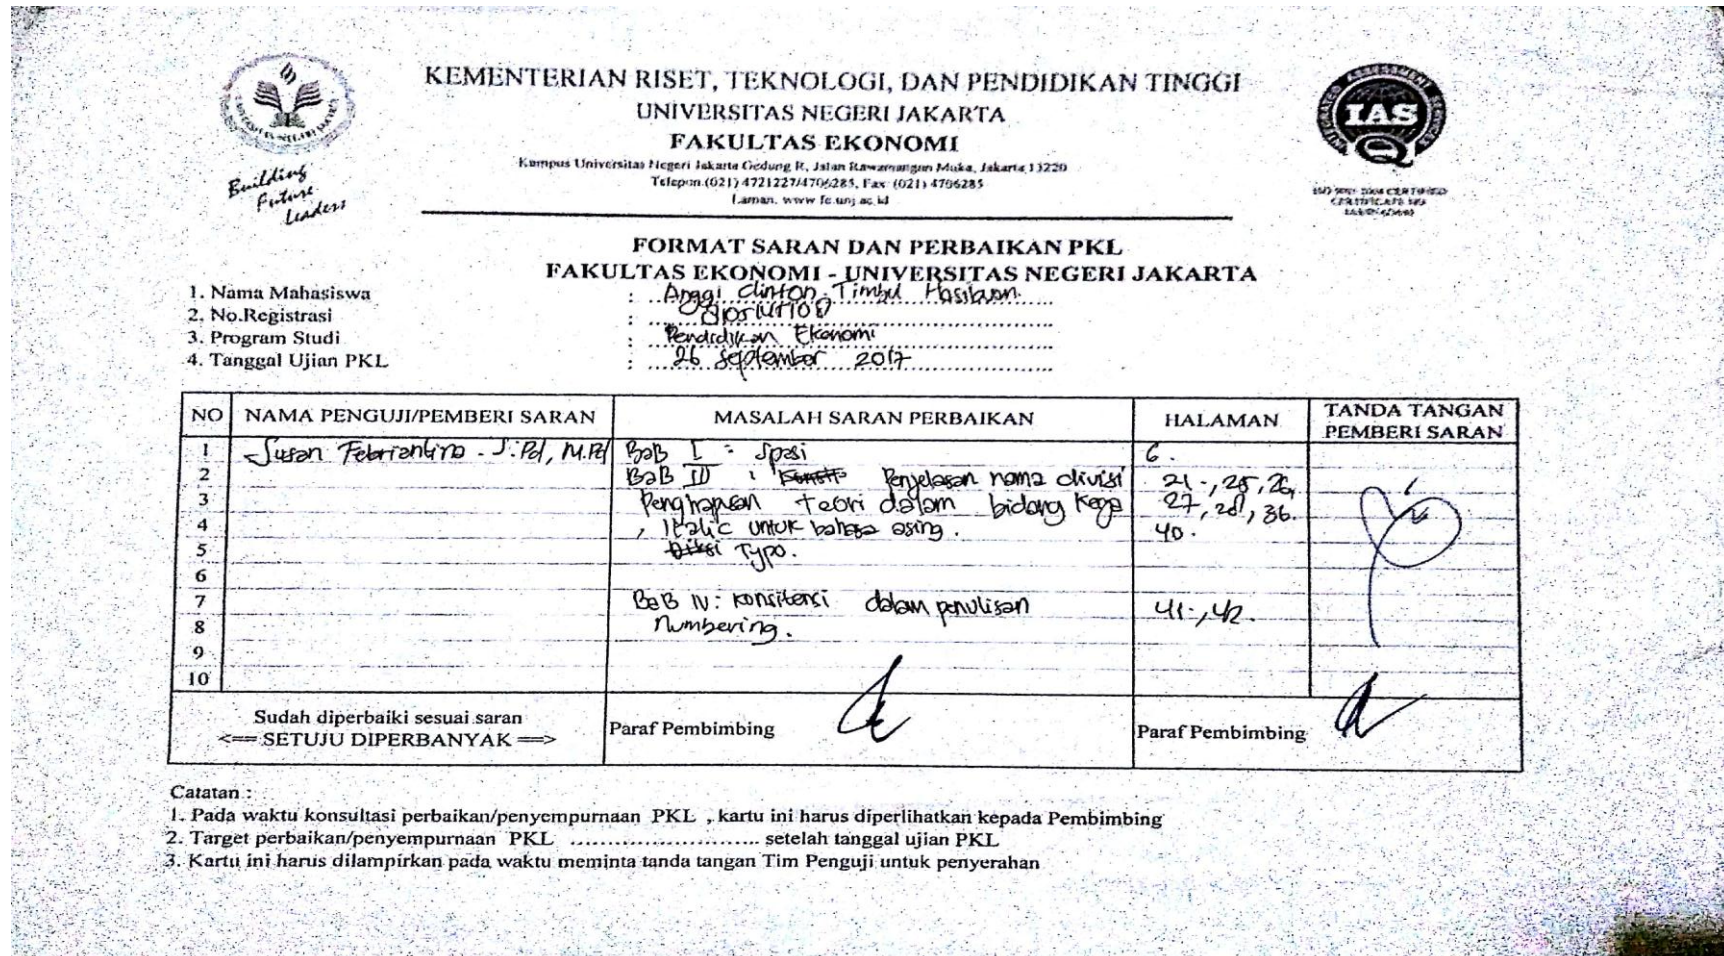 KEMENTERIAN RISET, TEKNOLOGI, DAN PENDIDIKAN TINGGI
UNIVERSITAS NEGERI JAKARTA
FAKULTAS EKONOMI
Kampus Universitas Negeri Jakarta Gedung R, Jalan Rawamangun Muka, Jakarta 13220
Telepon (021) 4721227/4706285, Fax: (021) 4706285
Laman: www.fe.unj.ac.id
Building
Future
Leaders
IAS
FORMAT SARAN DAN PERBAIKAN PKL
FAKULTAS EKONOMI - UNIVERSITAS NEGERI JAKARTA
1. Nama Mahasiswa : Anggi Clinton Timbul Hasibuan
2. No.Registrasi :
3. Program Studi : Pendidikan Ekonomi
4. Tanggal Ujian PKL : 26 September 2017
NO NAMA PENGUJI/PEMBERI SARAN MASALAH SARAN PERBAIKAN HALAMAN TANDA TANGAN PEMBERI SARAN
1 Susan Febriantina S.Pd, M.Pd BaB I : Spasi 6.
2 BaB III : Penjelasan nama divisi 21, 25, 26,
3 Penghapusan teori dalam bidang Kerja 27, 28, 36.
4 , Italic untuk bahasa asing. 40.
5 Typo.
6
7 BaB IV : Konsitensi dalam penulisan 41, 42.
8 Numbering.
9
10
Sudah diperbaiki sesuai saran
<== SETUJU DIPERBANYAK ==>
Paraf Pembimbing Paraf Pembimbing
Catatan :
1. Pada waktu konsultasi perbaikan/penyempurnaan PKL , kartu ini harus diperlihatkan kepada Pembimbing
2. Target perbaikan/penyempurnaan PKL ............................ setelah tanggal ujian PKL
3. Kartu ini harus dilampirkan pada waktu meminta tanda tangan Tim Penguji untuk penyerahan